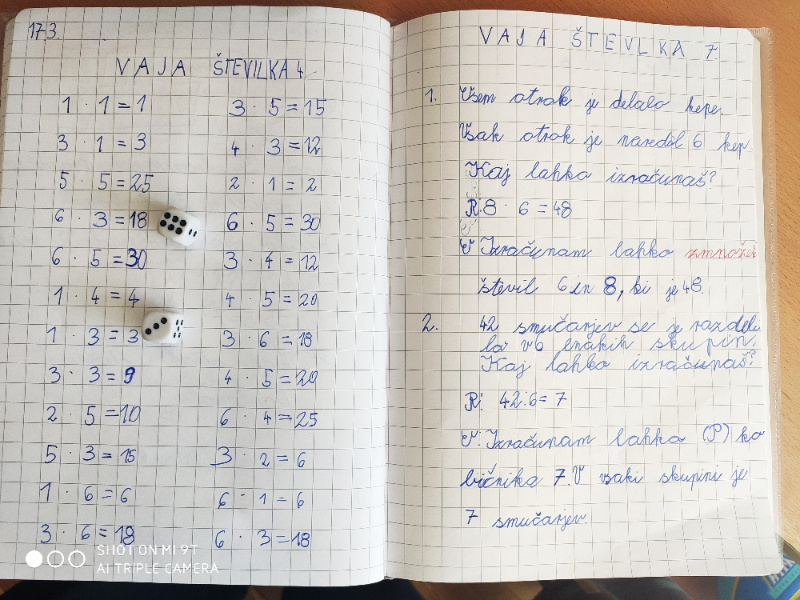 173.
VAJA ŠTEVILKA 4
1 · 1 = 1
3 · 1 = 3
5 · 5 = 25
6 · 3 = 18
6 · 5 = 30
1 · 4 = 4
1 · 3 = 3
3 · 3 = 9
2 · 5 = 10
5 · 3 = 15
1 · 6 = 6
3 · 6 = 18
3 · 5 = 15
4 · 3 = 12
2 · 1 = 2
6 · 5 = 30
3 · 4 = 12
4 · 5 = 20
3 · 6 = 18
4 · 5 = 20
6 · 4 = 25
3 · 2 = 6
6 · 1 = 6
6 · 3 = 18
SHOT ON MI 9T
AI TRIPLE CAMERA
VAJA ŠTEVLKA 7
1. Osem otrok je delalo kepe.
Vsak otrok je naredil 6 kep
Kaj lahko izračunaš?
R: 8 · 6 = 48
O: Izračunam lahko zmnožek
števil 6 in 8, ki je 48.
2. 42 smučarjev se je razdeli
lo v 6 enakih skupin.
Kaj lahko izračunaš?
R: 42:6= 7
O: Izračunam lahko (P) ko
ličnika 7. V vsaki skupini je
7 smučarjev.